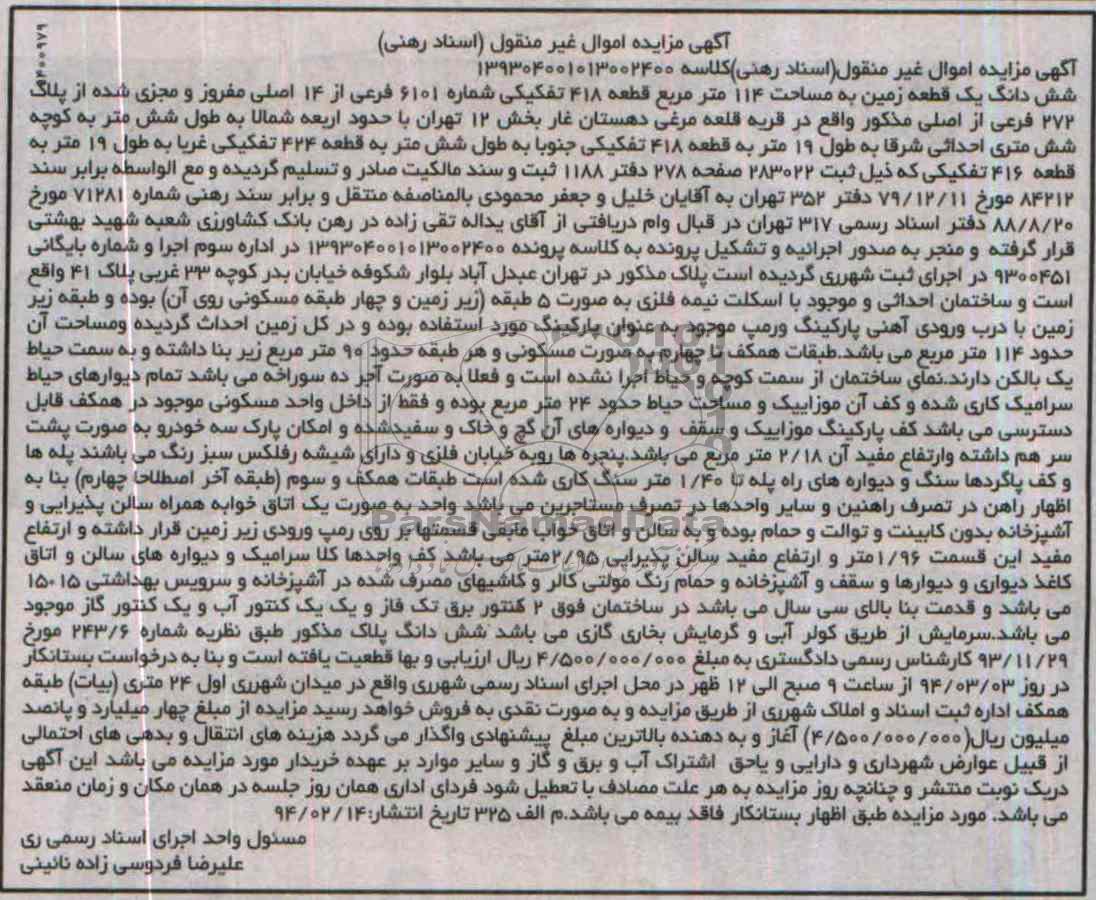 ۹۴۰۰۹۷۹
آگهی مزایده اموال غیر منقول (اسناد رهنی)
آگهی مزایده اموال غیر منقول(اسناد رهنی)کلاسه ۱۳۹۳۰۴۰۰۱۰۱۳۰۰۲۴۰۰
شش دانگ یک قطعه زمین به مساحت ۱۱۴ متر مربع قطعه ۴۱۸ تفکیکی شماره ۶۱۰۱ فرعی از ۱۴ اصلی مفروز و مجزی شده از پلاک
۲۷۲ فرعی از اصلی مذکور واقع در قریه قلعه مرغی دهستان غار بخش ۱۲ تهران با حدود اربعه شمالا به طول شش متر به کوچه
شش متری احداثی شرقا به طول ۱۹ متر به قطعه ۴۱۸ تفکیکی جنوبا به طول شش متر به قطعه ۴۲۴ تفکیکی غربا به طول ۱۹ متر به
قطعه ۴۱۶ تفکیکی که ذیل ثبت ۲۸۳۰۲۲ صفحه ۲۷۸ دفتر ۱۱۸۸ ثبت و سند مالکیت صادر و تسلیم گردیده و مع الواسطه برابر سند
۸۴۲۱۲ مورخ ۷۹/۱۲/۱۱ دفتر ۳۵۲ تهران به آقایان خلیل و جعفر محمودی بالمناصفه منتقل و برابر سند رهنی شماره ۷۱۲۸۱ مورخ
۸۸/۸/۲۰ دفتر اسناد رسمی ۳۱۷ تهران در قبال وام دریافتی از آقای یداله تقی زاده در رهن بانک کشاورزی شعبه شهید بهشتی
قرار گرفته و منجر به صدور اجرائیه و تشکیل پرونده به کلاسه پرونده ۱۳۹۳۰۴۰۰۱۰۱۳۰۰۲۴۰۰ در اداره سوم اجرا و شماره بایگانی
۹۳۰۰۴۵۱ در اجرای ثبت شهرری گردیده است پلاک مذکور در تهران عبدل آباد بلوار شکوفه خیابان بدر کوچه ۳۳ غربی پلاک ۴۱ واقع
است و ساختمان احداثی و موجود با اسکلت نیمه فلزی به صورت ۵ طبقه (زیر زمین و چهار طبقه مسکونی روی آن) بوده و طبقه زیر
زمین با درب ورودی آهنی پارکینگ ورمپ موجود به عنوان پارکینگ مورد استفاده بوده و در کل زمین احداث گردیده ومساحت آن
حدود ۱۱۴ متر مربع می باشد.طبقات همکف تا چهارم به صورت مسکونی و هر طبقه حدود ۹۰ متر مربع زیر بنا داشته و به سمت حیاط
یک بالکن دارند.نمای ساختمان از سمت کوچه و حیاط اجرا نشده است و فعلا به صورت آجر ده سوراخه می باشد تمام دیوارهای حیاط
سرامیک کاری شده و کف آن موزاییک و مساحت حیاط حدود ۲۴ متر مربع بوده و فقط از داخل واحد مسکونی موجود در همکف قابل
دسترسی می باشد کف پارکینگ موزاییک و سقف و دیواره های آن گچ و خاک و سفیدشده و امکان پارک سه خودرو به صورت پشت
سر هم داشته وارتفاع مفید آن ۲/۱۸ متر مربع می باشد.پنجره ها روبه خیابان فلزی و دارای شیشه رفلکس سبز رنگ می باشند پله ها
و کف پاگردها سنگ و دیواره های راه پله تا ۱/۴۰ متر سنگ کاری شده است طبقات همکف و سوم (طبقه آخر اصطلاحا چهارم) بنا به
اظهار راهن در تصرف راهنین و سایر واحدها در تصرف مستاجرین می باشد واحد به صورت یک اتاق خوابه همراه سالن پذیرایی و
آشپزخانه بدون کابینت و توالت و حمام بوده و به سالن و اتاق خواب مابقی قسمتها بر روی رمپ ورودی زیر زمین قرار داشته و ارتفاع
مفید این قسمت ۱/۹۶متر و ارتفاع مفید سالن پذیرایی ۲/۹۵متر می باشد کف واحدها کلا سرامیک و دیواره های سالن و اتاق
کاغذ دیواری و دیوارها و سقف و آشپزخانه و حمام رنگ مولتی کالر و کاشیهای مصرف شده در آشپزخانه و سرویس بهداشتی ۱۵*۱۵
می باشد و قدمت بنا بالای سی سال می باشد در ساختمان فوق ۲ کنتور برق تک فاز و یک یک کنتور آب و یک کنتور گاز موجود
می باشد.سرمایش از طریق کولر آبی و گرمایش بخاری گازی می باشد شش دانگ پلاک مذکور طبق نظریه شماره ۲۴۳/۶ مورخ
۹۳/۱۱/۲۹ کارشناس رسمی دادگستری به مبلغ ۴/۵۰۰/۰۰۰/۰۰۰ ریال ارزیابی و بها قطعیت یافته است و بنا به درخواست بستانکار
در روز ۹۴/۰۳/۰۳ از ساعت ۹ صبح الی ۱۲ ظهر در محل اجرای اسناد رسمی شهرری واقع در میدان شهرری اول ۲۴ متری (بیات) طبقه
همکف اداره ثبت اسناد و املاک شهرری از طریق مزایده و به صورت نقدی به فروش خواهد رسید مزایده از مبلغ چهار میلیارد و پانصد
میلیون ریال(۴/۵۰۰/۰۰۰/۰۰۰) آغاز و به دهنده بالاترین مبلغ پیشنهادی واگذار می گردد هزینه های انتقال و بدهی های احتمالی
از قبیل عوارض شهرداری و دارایی و یاحق اشتراک آب و برق و گاز و سایر موارد بر عهده خریدار مورد مزایده می باشد این آگهی
دریک نوبت منتشر و چنانچه روز مزایده به هر علت مصادف با تعطیل شود فردای اداری همان روز جلسه در همان مکان و زمان منعقد
می باشد. مورد مزایده طبق اظهار بستانکار فاقد بیمه می باشد.م الف ۳۲۵ تاریخ انتشار:۹۴/۰۲/۱۴
مسئول واحد اجرای اسناد رسمی ری
علیرضا فردوسی زاده نائینی
ParsNamadData